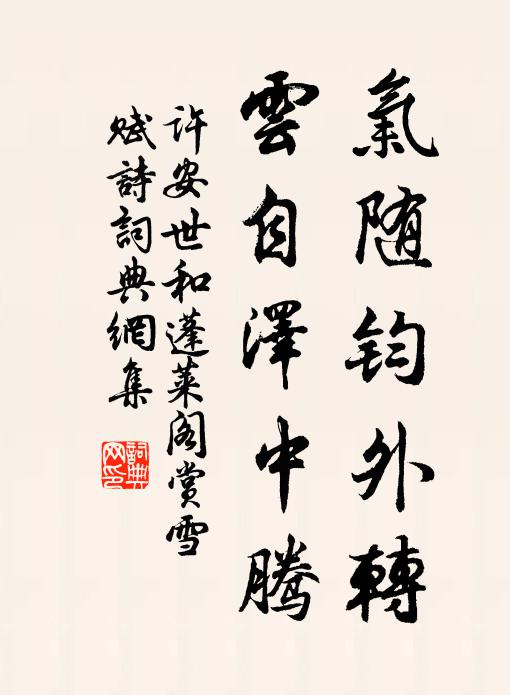 氣随鈞外轉
雲自澤中騰
許安世和蓬萊阁賞雪
赋詩詞典網集
詞典网印